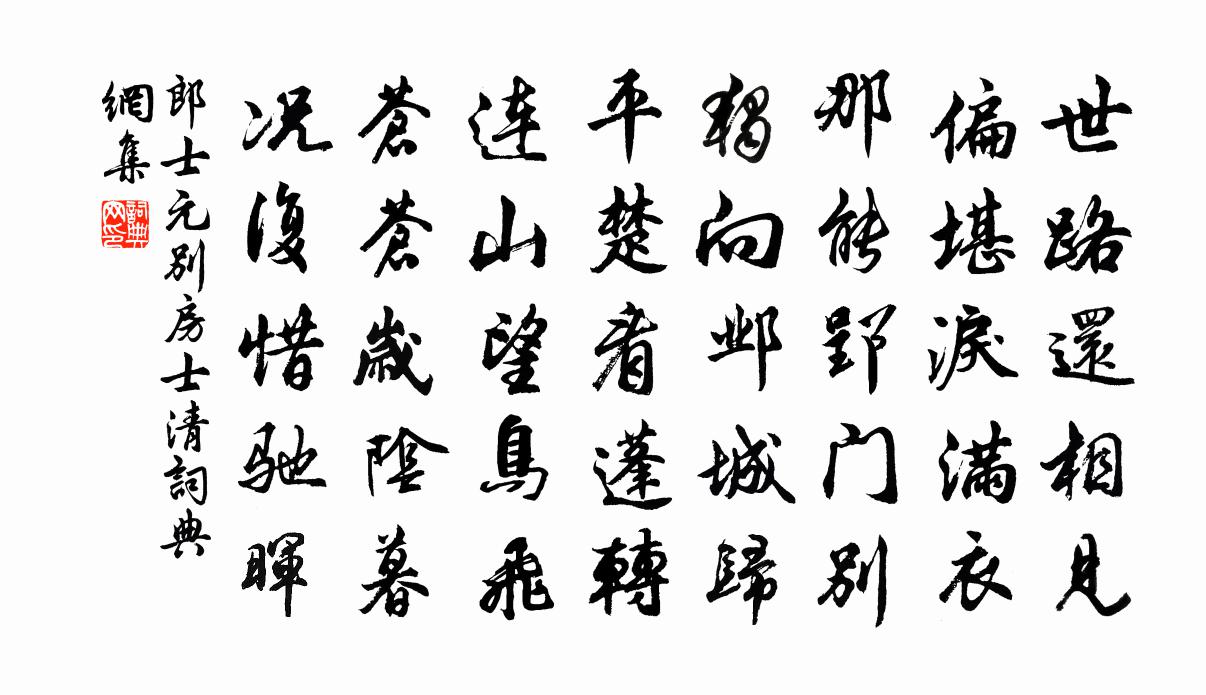 世路還相見
偏堪淚滿衣
那能郢门別
獨向邺城歸
平楚看蓬轉
連山望鳥飛
蒼蒼歲陰暮
况復惜馳暉
郎士元別房士清詞典
網集
詞典網印